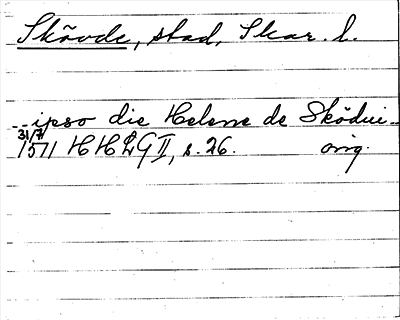 Skövde, stad, Skar. l.
...ipso die Helene de Sködui...
31/7
1511 HH LG II, s. 26. orig.